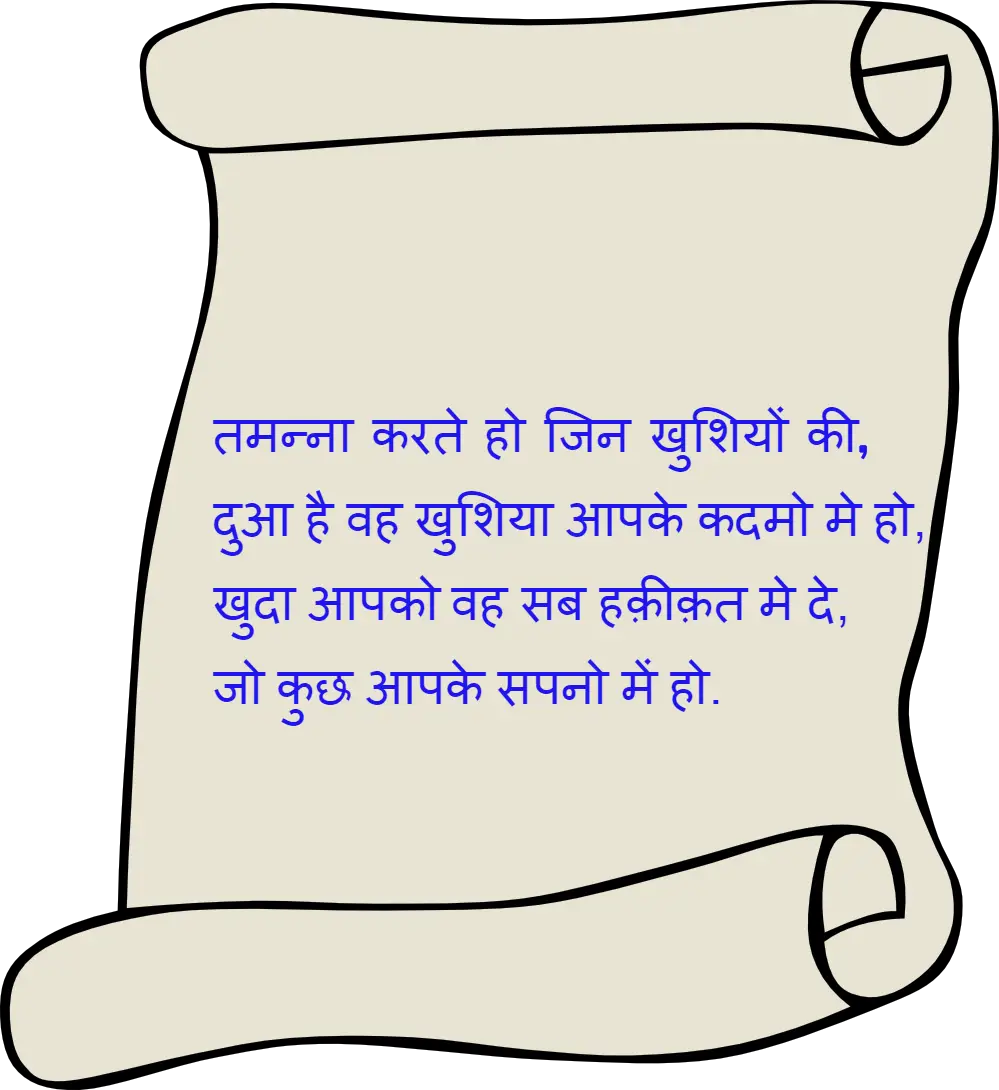 तमन्ना करते हो जिन खुशियों की,
दुआ है वह खुशिया आपके कदमो मे हो,
खुदा आपको वह सब हक़ीक़त मे दे,
जो कुछ आपके सपनो में हो.